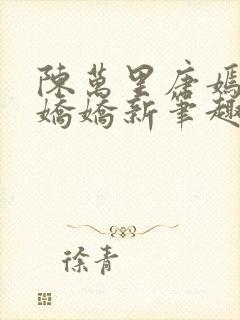 陳萬里唐嫣
嬌嬌新筆趣
徐青